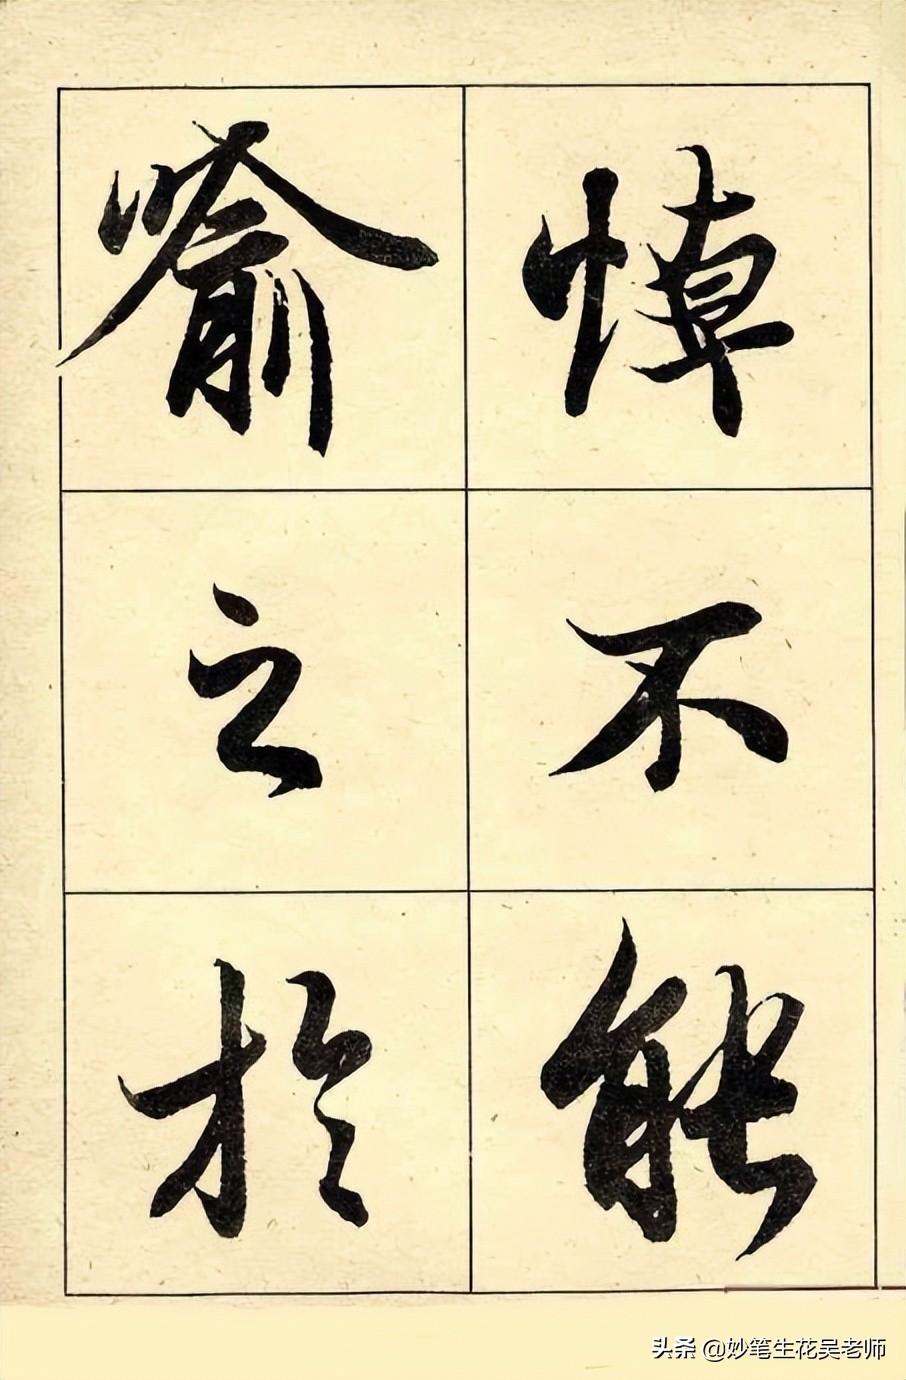 悼不能
喻之於
头条 @妙笔生花吴老师